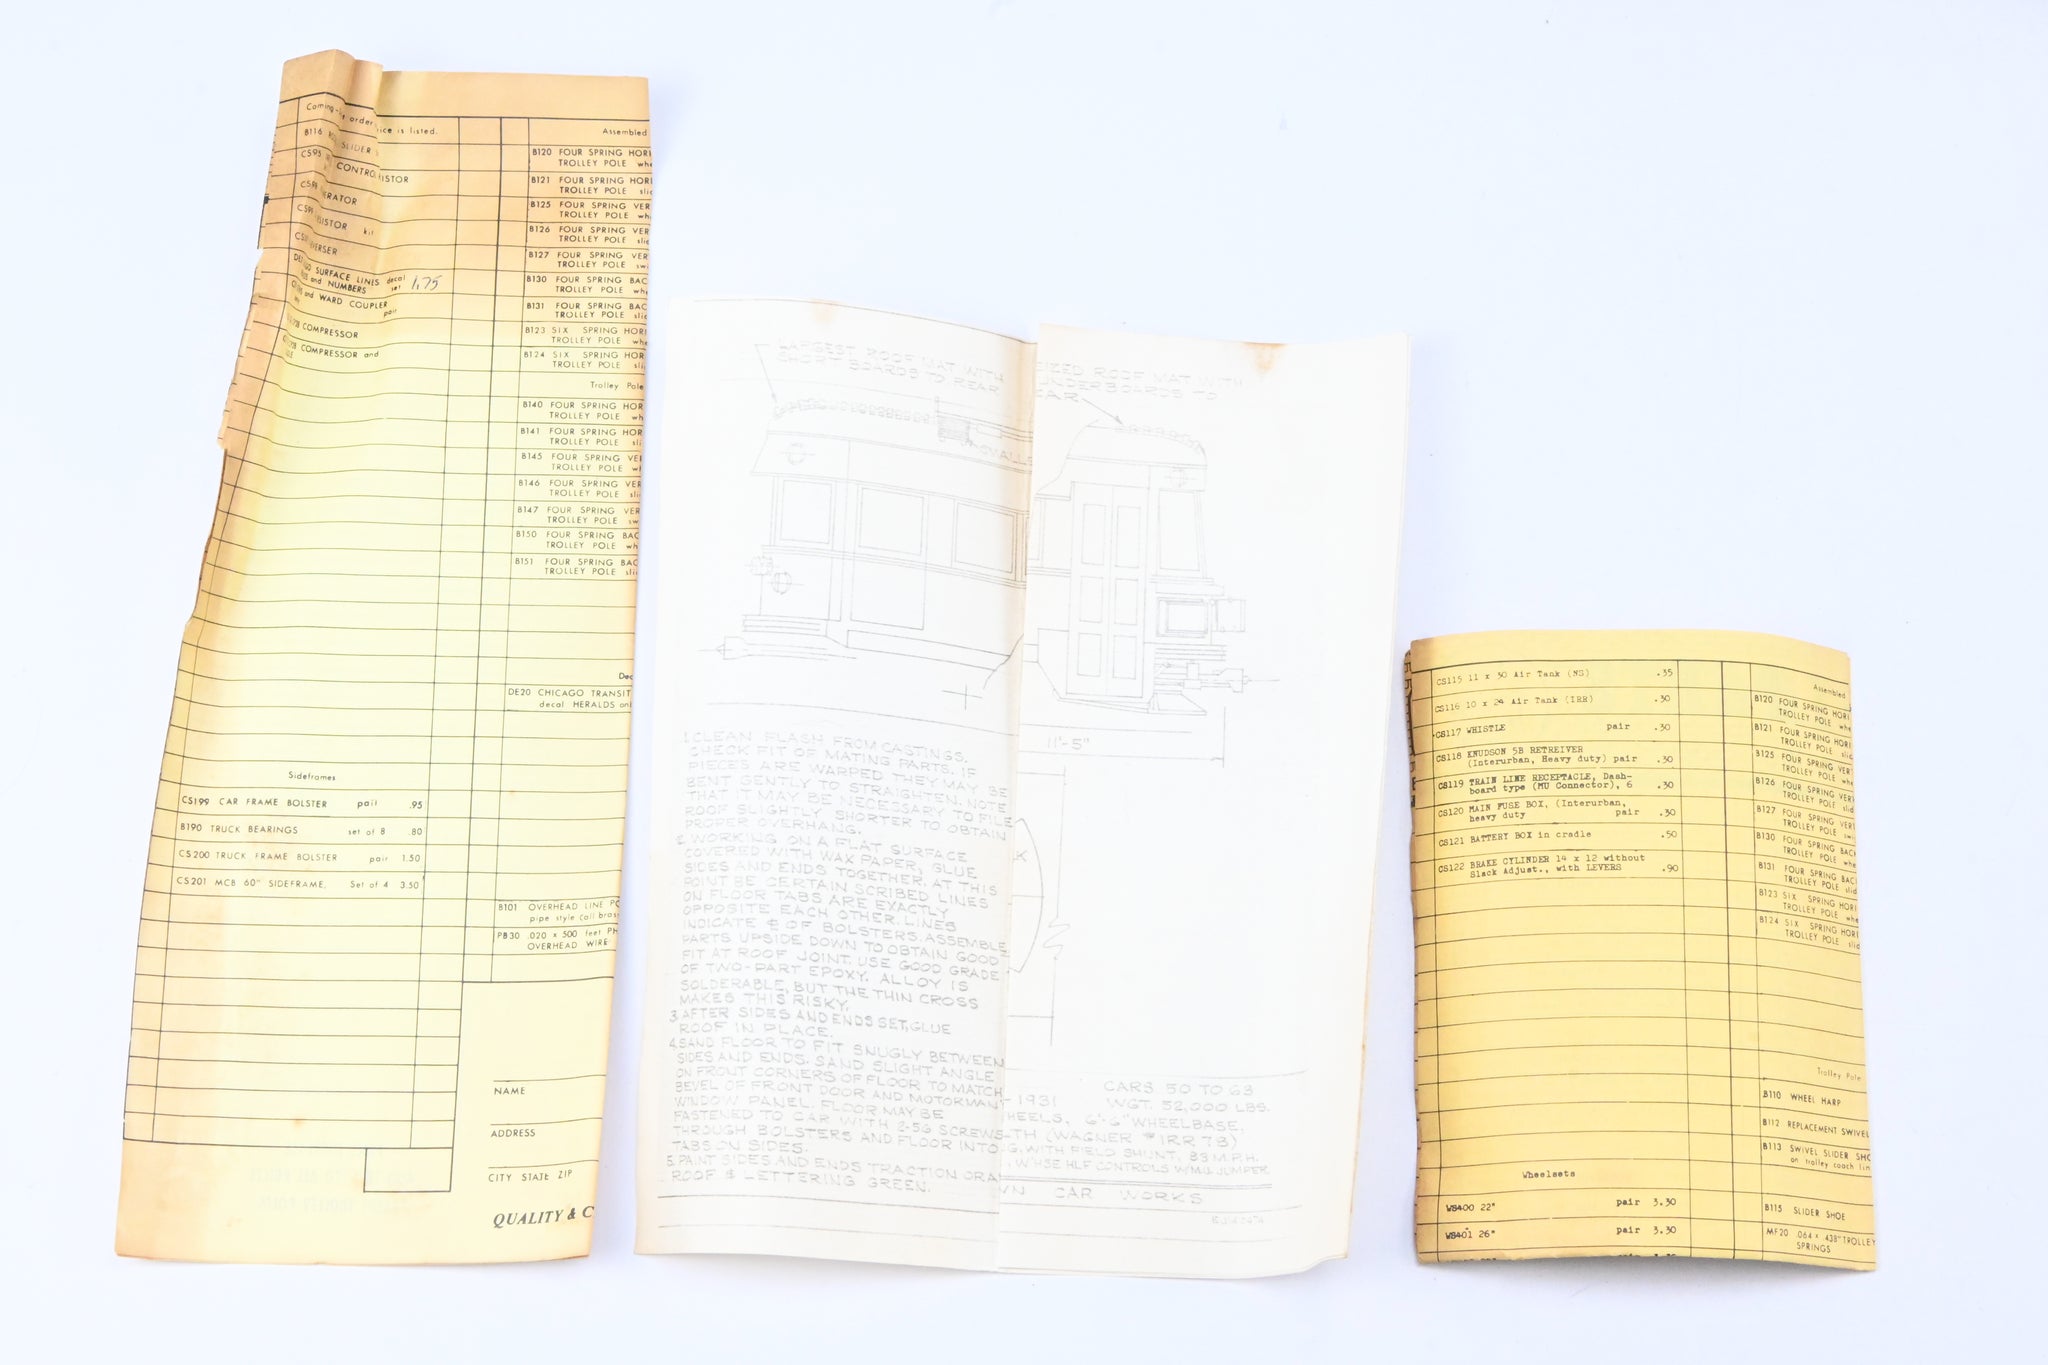 Coming
order
ice is listed.
B116
SLIDER
CS95
CONTROL
ISTOR
ERATOR
ISTOR kit
ERSER
SURFACE LINES decal
and NUMBERS set 1.75
and WARD COUPLER
pair
COMPRESSOR
COMPRESSOR and
Sideframes
CS199 CAR FRAME BOLSTER pair .95
B190 TRUCK BEARINGS set of 8 .80
CS200 TRUCK FRAME BOLSTER pair 1.50
CS201 MCB 60" SIDEFRAME, Set of 4 3.50
Assembled
B120 FOUR SPRING HORI
TROLLEY POLE whe
B121 FOUR SPRING HORI
TROLLEY POLE slid
B125 FOUR SPRING VER
TROLLEY POLE wh
B126 FOUR SPRING VER
TROLLEY POLE slid
B127 FOUR SPRING VER
TROLLEY POLE swi
B130 FOUR SPRING BAC
TROLLEY POLE whe
B131 FOUR SPRING BAC
TROLLEY POLE slid
B123 SIX SPRING HORI
TROLLEY POLE whe
B124 SIX SPRING HOR
TROLLEY POLE sli
Trolley Pole
B140 FOUR SPRING HOR
TROLLEY POLE wh
B141 FOUR SPRING HOR
TROLLEY POLE sli
B145 FOUR SPRING VER
TROLLEY POLE wh
B146 FOUR SPRING VER
TROLLEY POLE sli
B147 FOUR SPRING VER
TROLLEY POLE sw
B150 FOUR SPRING BAC
TROLLEY POLE wh
B151 FOUR SPRING BAC
TROLLEY POLE sli
Dec
DE20 CHICAGO TRANSIT
decal HERALDS onl
B101 OVERHEAD LINE PO
pipe style (all bras
PB30 .020 x 500 feet PH
OVERHEAD WIRE
NAME
ADDRESS
CITY STATE ZIP
QUALITY & C
LARGEST ROOF MAT WITH
SHORT BOARDS TO REAR
SMALLE
1. CLEAN FLASH FROM CASTINGS.
CHECK FIT OF MATING PARTS. IF
PIECES ARE WARPED THEY MAY BE
BENT GENTLY TO STRAIGHTEN. NOTE
THAT IT MAY BE NECESSARY TO FILE
ROOF SLIGHTLY SHORTER TO OBTAIN
PROPER OVERHANG.
2. WORKING ON A FLAT SURFACE
COVERED WITH WAX PAPER, GLUE
SIDES AND ENDS TOGETHER. AT THIS
POINT BE CERTAIN SCRIBED LINES
ON FLOOR TABS ARE EXACTLY
OPPOSITE EACH OTHER. LINES
INDICATE ℄ OF BOLSTERS. ASSEMBLE
PARTS UPSIDE DOWN TO OBTAIN GOOD
FIT AT ROOF JOINT. USE GOOD GRADE
OF TWO-PART EPOXY. ALLOY IS
SOLDERABLE, BUT THE THIN CROSS
MAKES THIS RISKY.
3. AFTER SIDES AND ENDS SET, GLUE
ROOF IN PLACE.
4. SAND FLOOR TO FIT SNUGLY BETWEEN
SIDES AND ENDS. SAND SLIGHT ANGLE
ON FRONT CORNERS OF FLOOR TO MATCH
BEVEL OF FRONT DOOR AND MOTORMAN'
WINDOW PANEL. FLOOR MAY BE
FASTENED TO CAR WITH 2-56 SCREWS
THROUGH BOLSTERS AND FLOOR INTO
TABS ON SIDES.
5. PAINT SIDES AND ENDS TRACTION ORA
ROOF & LETTERING GREEN.
SIZED ROOF MAT WITH
UNDERBOARDS TO
EAR
11'-5"
K
- 1931 CARS 50 TO 63
WGT. 52,000 LBS.
HEELS, 6'-6" WHEELBASE,
TH (WAGNER #IRR 78)
G. WITH FIELD SHUNT, 83 M.P.H.
W'HSE HLF CONTROLS W/M.U. JUMPER
WN CAR WORKS
CS115 11 x 30 Air Tank (NS) .35
CS116 10 x 24 Air Tank (IRR) .30
CS117 WHISTLE pair .30
CS118 KNUDSON 5B RETREIVER
(Interurban, Heavy duty) pair .30
CS119 TRAIN LINE RECEPTACLE, Dash-
board type (MU Connector), 6 .30
CS120 MAIN FUSE BOX, (Interurban,
heavy duty pair .30
CS121 BATTERY BOX in cradle .50
CS122 BRAKE CYLINDER 14 x 12 without
Slack Adjust., with LEVERS .90
Wheelsets
WS400 22" pair 3.30
WS401 26" pair 3.30
Assembled
B120 FOUR SPRING HORI
TROLLEY POLE whe
B121 FOUR SPRING HORI
TROLLEY POLE slid
B125 FOUR SPRING VERT
TROLLEY POLE whe
B126 FOUR SPRING VERT
TROLLEY POLE slid
B127 FOUR SPRING VERT
TROLLEY POLE swi
B130 FOUR SPRING BACK
TROLLEY POLE whe
B131 FOUR SPRING BACK
TROLLEY POLE slid
B123 SIX SPRING HORI
TROLLEY POLE whe
B124 SIX SPRING HORI
TROLLEY POLE slid
Trolley Pole
B110 WHEEL HARP
B112 REPLACEMENT SWIVEL
B113 SWIVEL SLIDER SHO
on trolley coach lin
B115 SLIDER SHOE
MF20 .064 x .438" TROLLEY
SPRINGS